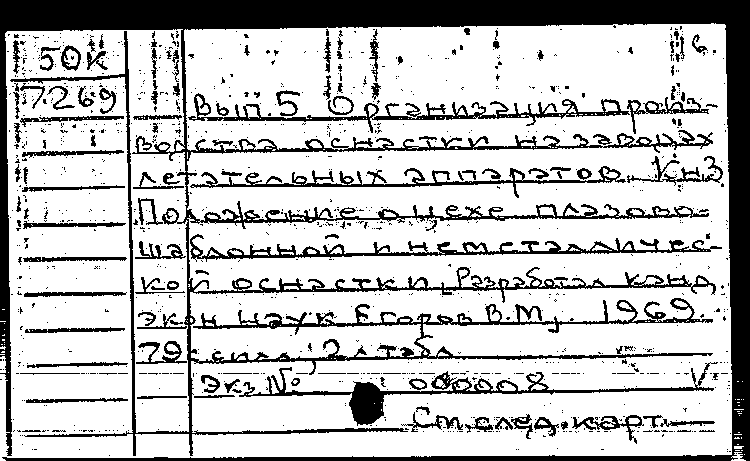 50К
7269
6.
Вып.5. Организация произ-
водства оснастки на заводах
летательных аппаратов. Кн.3
Положение о цехе плазово-
шаблонной и неметалличес-
кой оснастки. Разработал канд
экон наук Егоров В.М., 1969.
79с илл; 2л табл
Экз.№ 000008 V
См.след.карт.